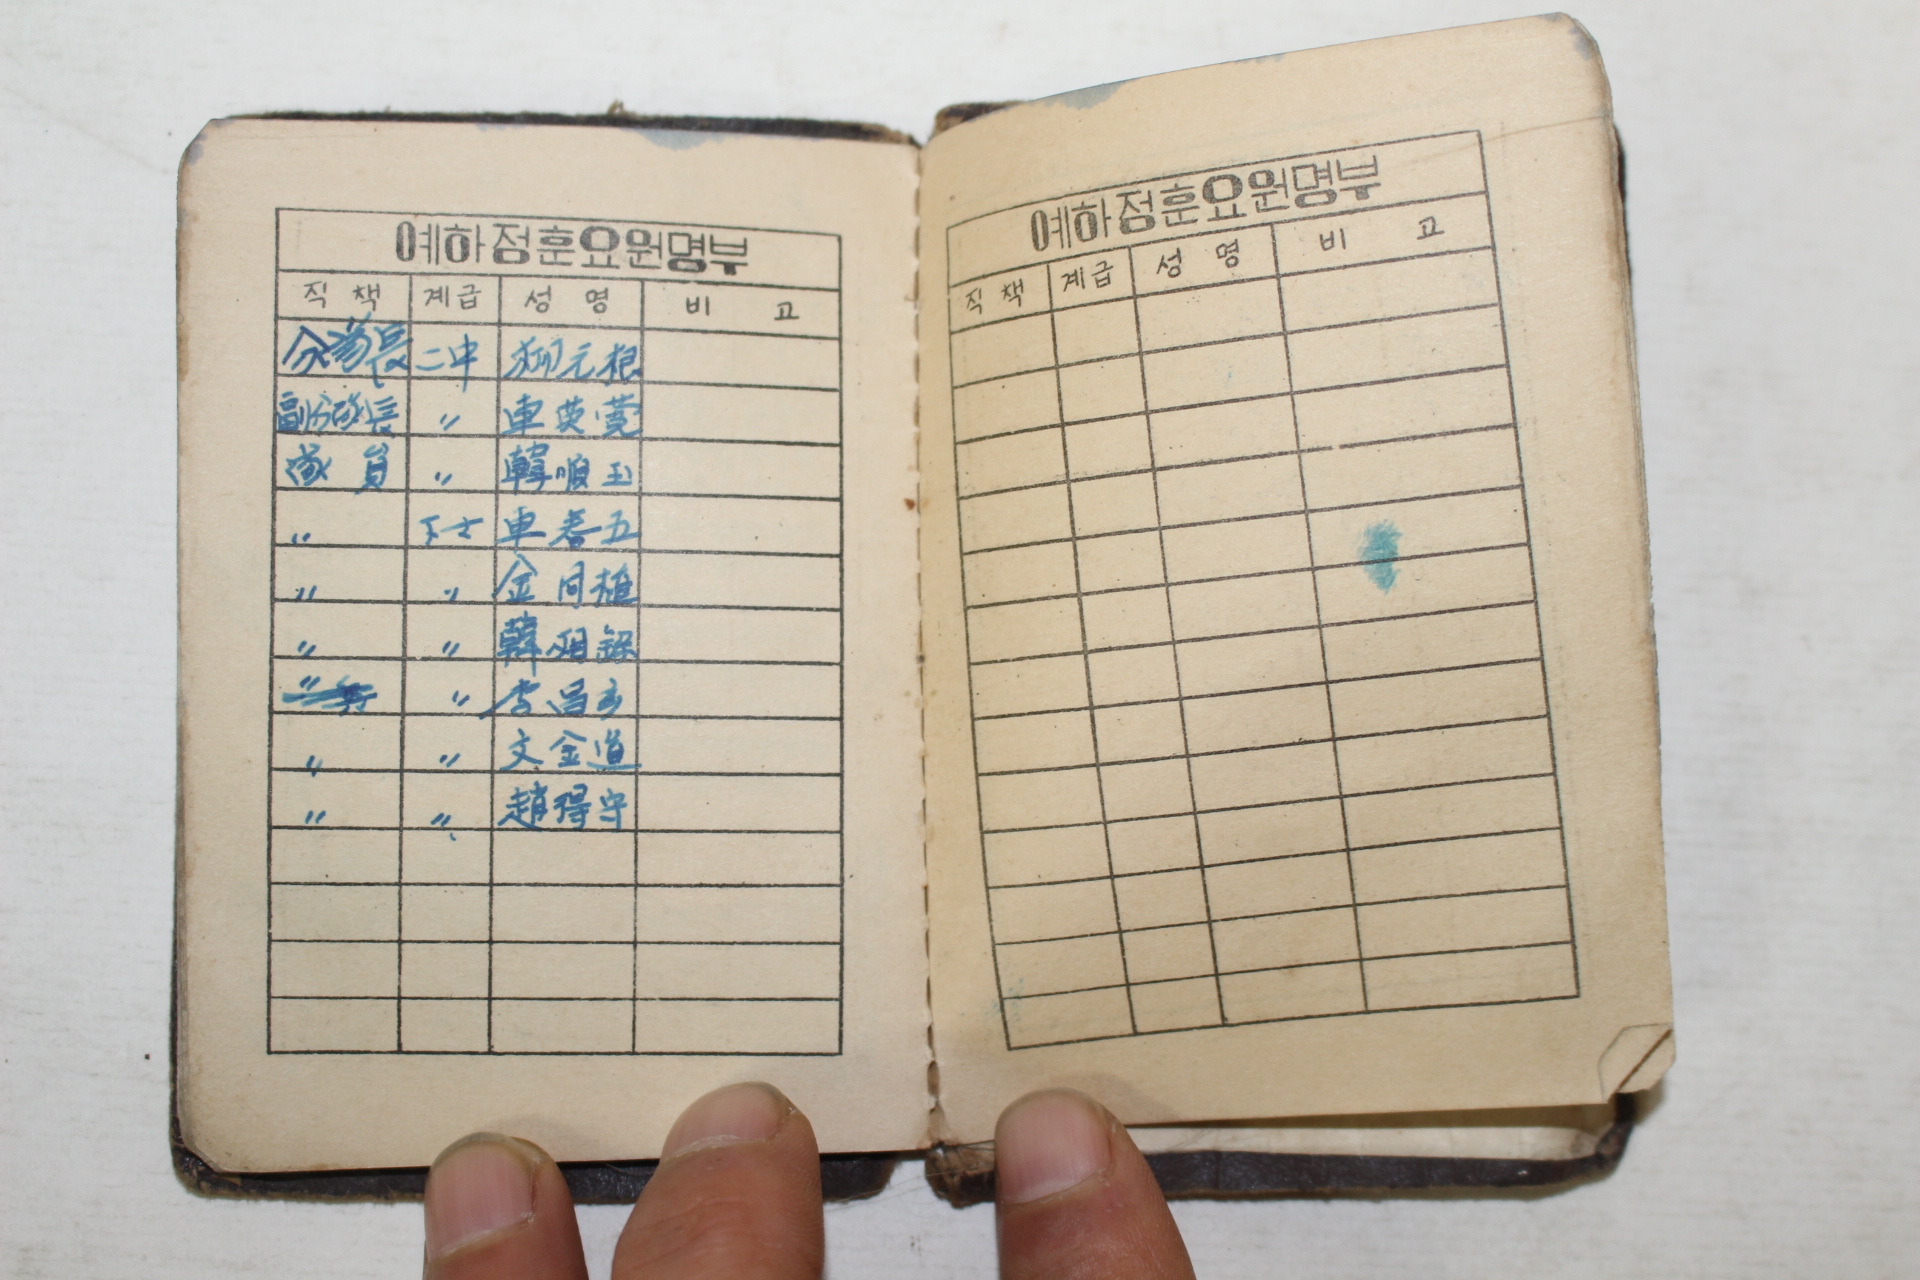 예하정훈요원명부
직책 계급 성명 비고
分隊長 二中 元根
副分隊長 〃 車英
隊員 〃 韓順玉
〃 下士 車春五
〃 〃 金同植
〃 〃 韓 錄
〃 〃 李昌
〃 〃 文金道
〃 〃 趙得守
예하정훈요원명부
직책 계급 성명 비고